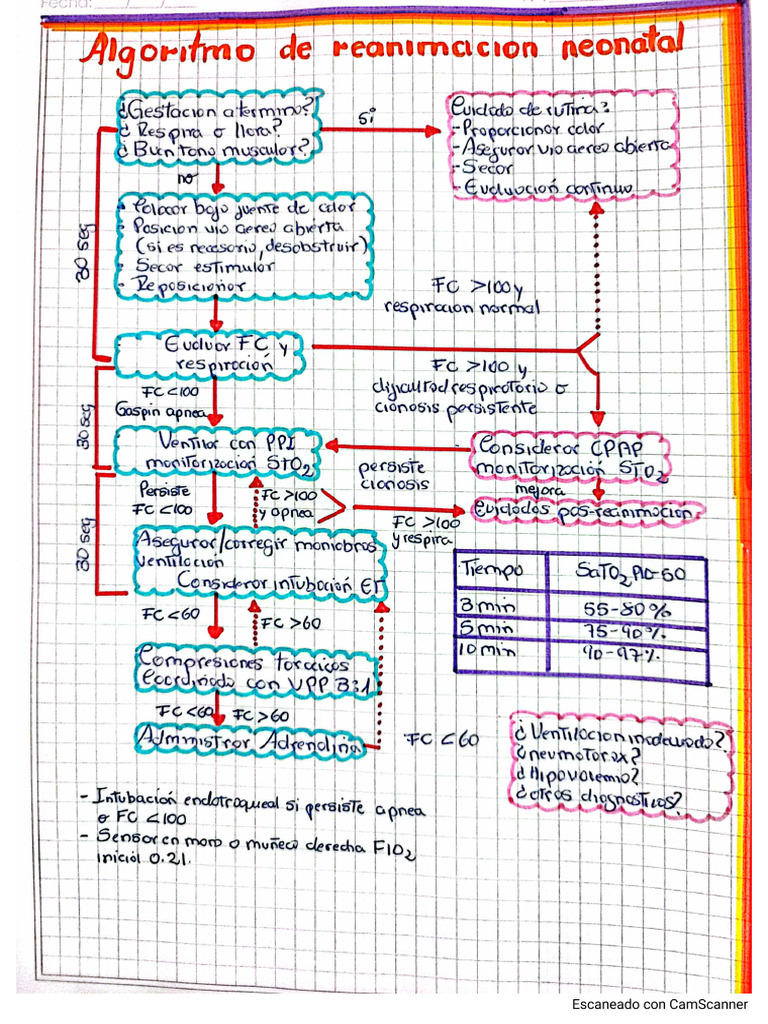 Fecha:
Algoritmo de reanimacion neonatal
¿Gestacion a termino?
¿Respira o llora?
¿Buen tono muscular?
si
Cuidado de rutina:
-Proporcionar calor
-Asegurar via aerea abierta
-Secar
-Evaluación continua
no
- Colocar bajo fuente de calor
- Posicion via aerea abierta
(si es necesario, desobstruir)
- Secar estimular
- Reposicionar
30 seg
FC >100 y
respiracion normal
Evaluar FC y
respiración
FC >100 y
dificultad respiratoria o
cianosis persistente
FC <100
Gaspin apnea
30 seg
Ventilar con PPI
monitorización STO2
Considerar CPAP
monitorización STO2
persiste
cianosis
mejora
Cuidados pos-reanimacion
Persiste
FC <100
FC >100
y apnea
FC >100
y respira
30 seg
Asegurar/corregir maniobras
ventilación
Considerar intubación ET
Tiempo SaTO2 PAD-60
3 min 55-80%
5 min 75-90%
10 min 90-97%
FC <60
FC >60
Compresiones toracicas
Coordinado con VPP 3:1
FC <60 FC >60
Administrar Adrenalina
FC < 60
¿Ventilacion inadecuada?
¿neumotorax?
¿Hipovolemia?
¿otros diagnosticos?
- Intubación endotraqueal si persiste apnea
o FC <100
- Sensor en mano o muñeca derecha FIO2
inicial 0.21.
Escaneado con CamScanner